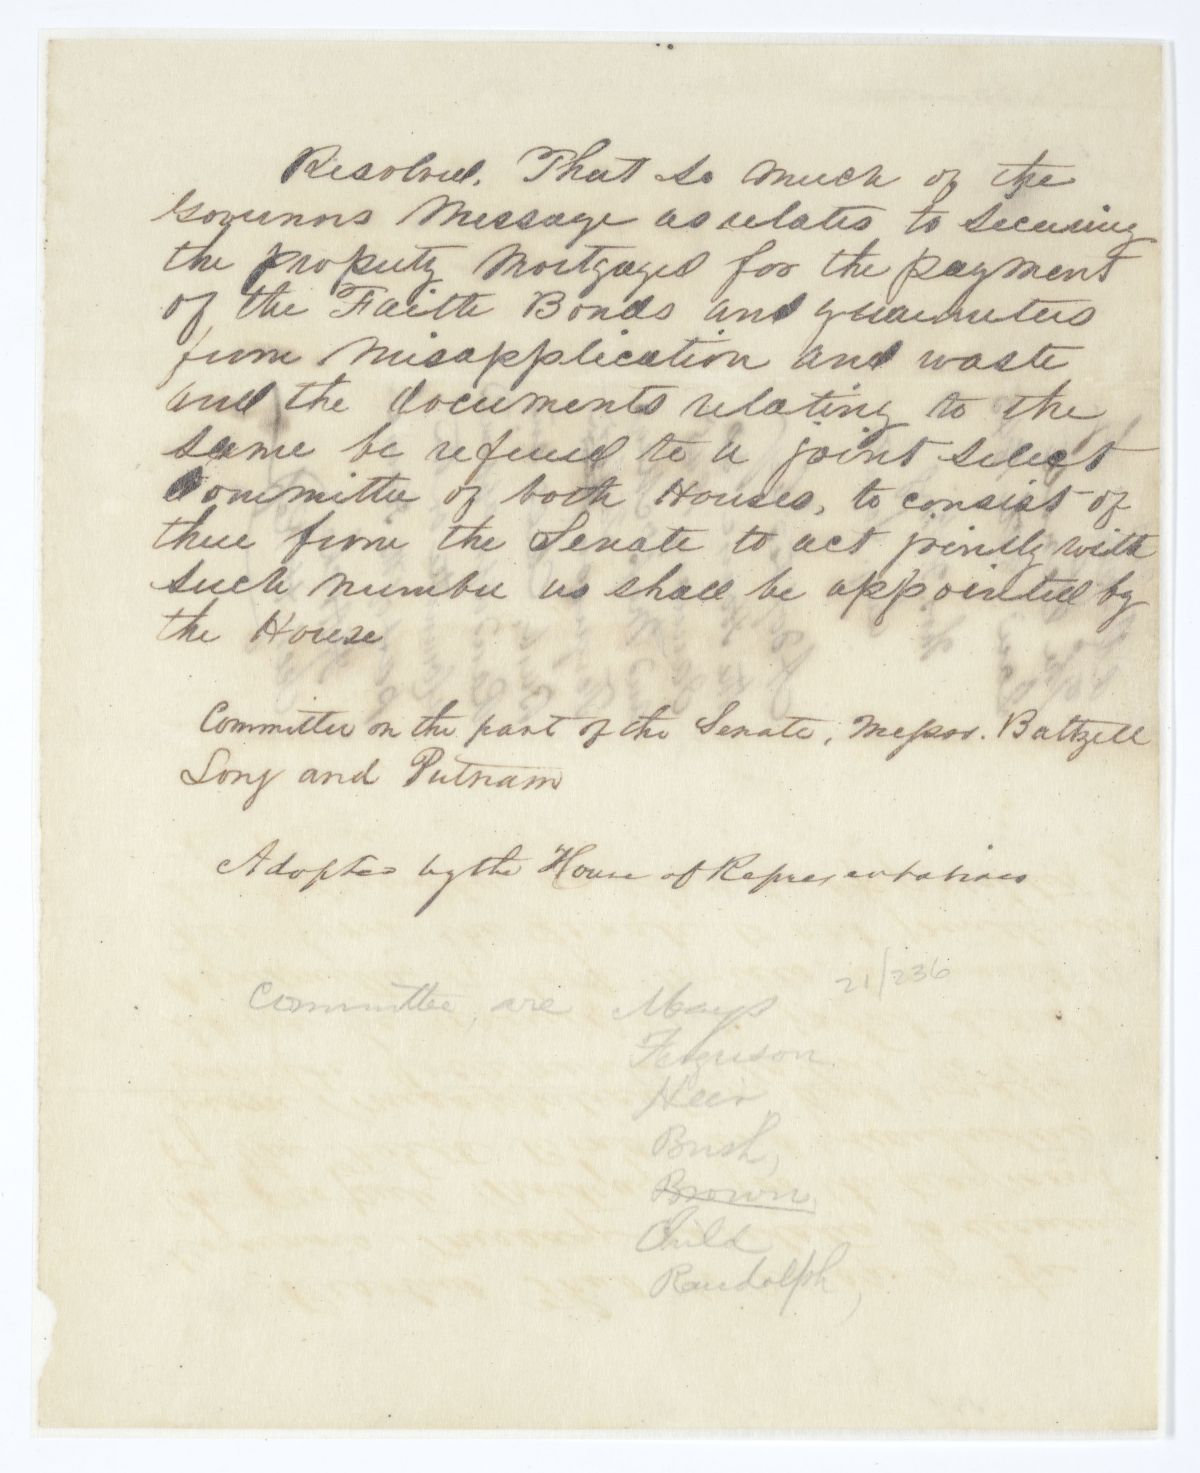 Resolved. That so much of the
Governors Message as relates to securing
the property Mortgaged for the payment
of the Faith Bonds and guarantees
from Misapplication and waste
and the documents relating to the
same be refered to a joint select
Committee of both Houses, to consist of
three from the Senate to act jointly with
such number as shall be appointed by
the House
Committee on the part of the Senate, Messrs. Baltzell
Long and Putnam
Adopted by the House of Representatives
21/236
Committee, are Mays
Ferguson
Heir
Bush,
Brown,
Child
Randolph,